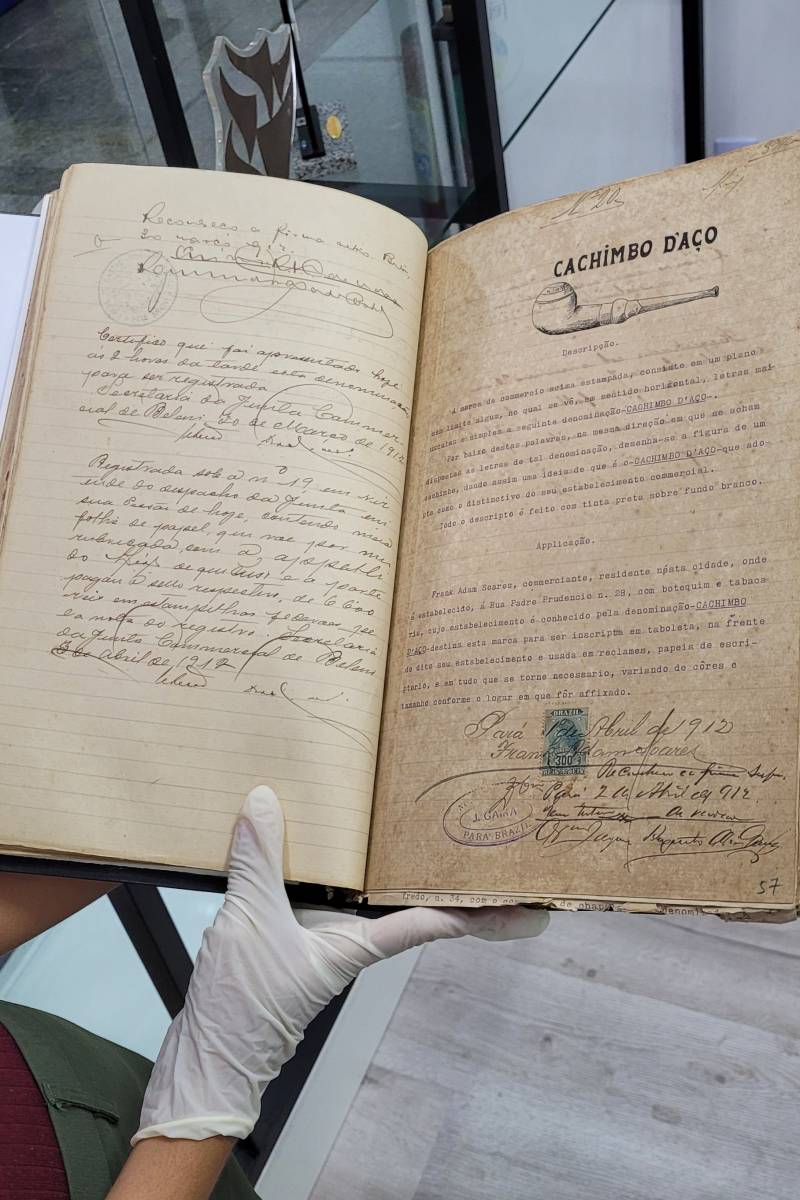 Reconheço a firma
20 março 912.
Certifico que foi apresentado hoje
ás 2 horas da tarde esta denominação
para ser registrada
Secretaria da Junta Commer-
cial de Belem, 20 de Março de 1912
Registrada sob o nº 19 em vir
tude do despacho da Junta em
sua sessão de hoje, contendo meia
folha de papel, que vae por mim
rubricada com o
do
pagou o sello respectivo, de 6.600
reis em estampilhas federaes
e a nota do registro. Secretaria
da Junta Commercial de Belem
3 de Abril de 1912
Nº 20
CACHIMBO D'AÇO
Descripção.
A marca de commercio acima estampada, consiste em um plano
sem limite algum, no qual se vê, em sentido horizontal, letras mai-
usculas e simples a seguinte denominação-CACHIMBO D'AÇO-.
Por baixo destas palavras, na mesma direcção em que se acham
dispostas as letras de tal denominação, desenha-se a figura de um
cachimbo, dando assim uma ideia de que é o-CACHIMBO D'AÇO-que ado-
pta como o distinctivo do seu estabelecimento commercial.
Todo o descripto é feito com tinta preta sobre fundo branco.
Applicação.
Frank Adam Soares, commerciante, residente nésta cidade, onde
é estabelecido, á Rua Padre Prudencio n. 28, com botequim e tabaca
ria, cujo estabelecimento é conhecido pela denominação-CACHIMBO
D'AÇO-destina esta marca para ser inscripta em taboleta, na frente
de dito seu estabelecimento e usada em reclames, papeis de escri-
ptorio, e em tudo que se torne necessario, variando de côres e
tamanho conforme o logar em que fôr affixado.
BRAZIL
300
Pará 1º de Abril de 1912
Frank Adam Soares
Reconheço a firma supra.
Pará 2 de Abril de 912.
J. GAMA
PARÁ BRAZIL
57
fredo, n. 34, com o